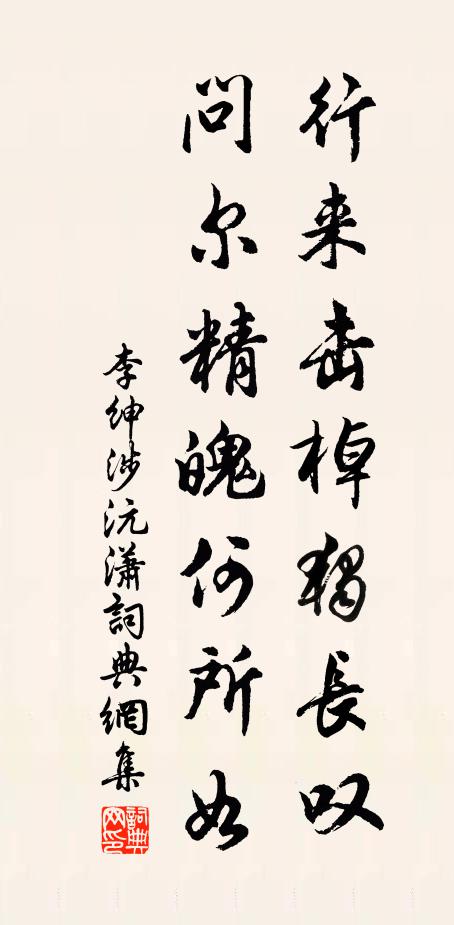 行来击棹独長叹
问尔精魄何所如
李绅涉沅潇詞典網集
詞典网印